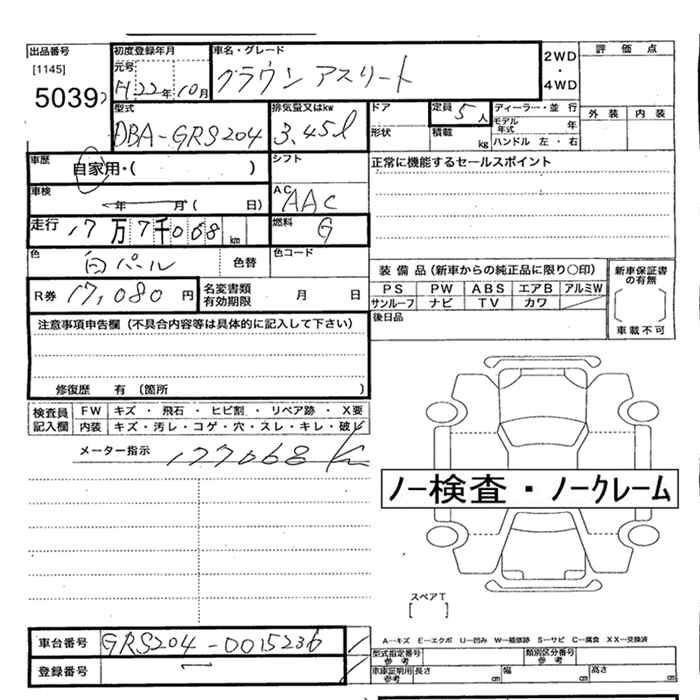 出品番号
[1145]
5039
初度登録年月
元号
H22年10月
車名・グレード
クラウン アスリート
2WD
・
4WD
評価点
外装 内装
型式
DBA-GRS204
排気量又はkw
3.45ℓ
ドア
形状
定員 5人
積載 kg
ディーラー・並行
モデル年式 年
ハンドル 左・右
車歴
自家用・( )
シフト
正常に機能するセールスポイント
車検
年 月( 日)
AC
AAC
走行 17万7千068km
燃料
G
色
白パール
色替
色コード
R券 17,080円
名変書類有効期限 月 日
装備品(新車からの純正品に限り○印)
PS PW ABS エアB アルミW
サンルーフ ナビ TV カワ
後日品
新車保証書の有無
車載不可
注意事項申告欄(不具合内容等は具体的に記入して下さい)
修復歴 有(箇所 )
検査員記入欄
FW キズ・飛石・ヒビ割・リペア跡・X要
内装 キズ・汚レ・コゲ・穴・スレ・キレ・破レ
メーター指示 177068K
ノー検査・ノークレーム
スペアT
[ ]
車台番号 GRS204-0015236
登録番号 ー
A―キズ E―エクボ U―凹み W―補修跡 S―サビ C―腐食 XX―交換済
型式指定番号参考
類別区分番号参考
車庫証明用参考 長さ cm 幅 cm 高さ cm